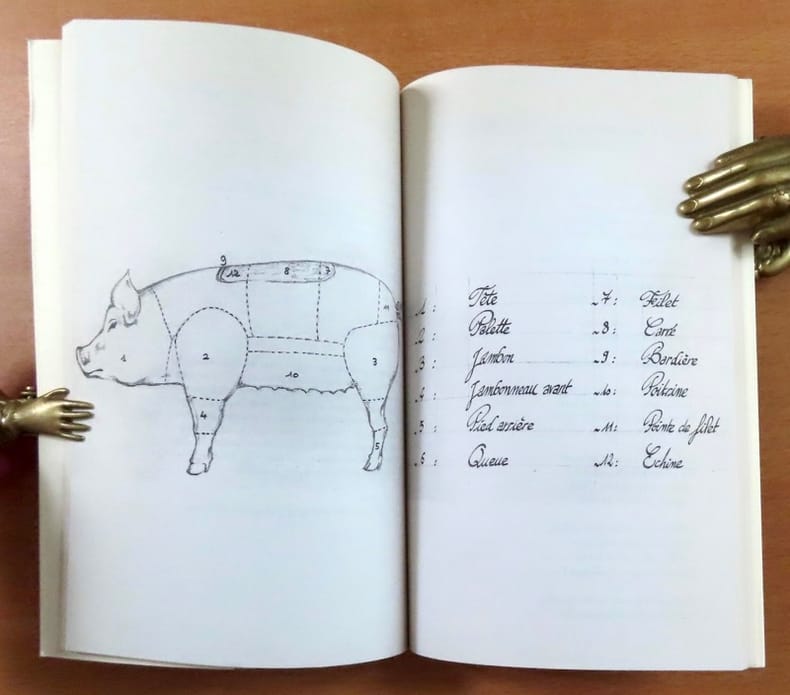 9
12 8 7
11
1 2 3
10
4
5
1 : Tête 7 : Filet
2 : Palette 8 : Carré
3 : Jambon 9 : Bardière
4 : Jambonneau avant 10 : Poitrine
5 : Pied arrière 11 : Pointe de filet
6 : Queue 12 : Echine